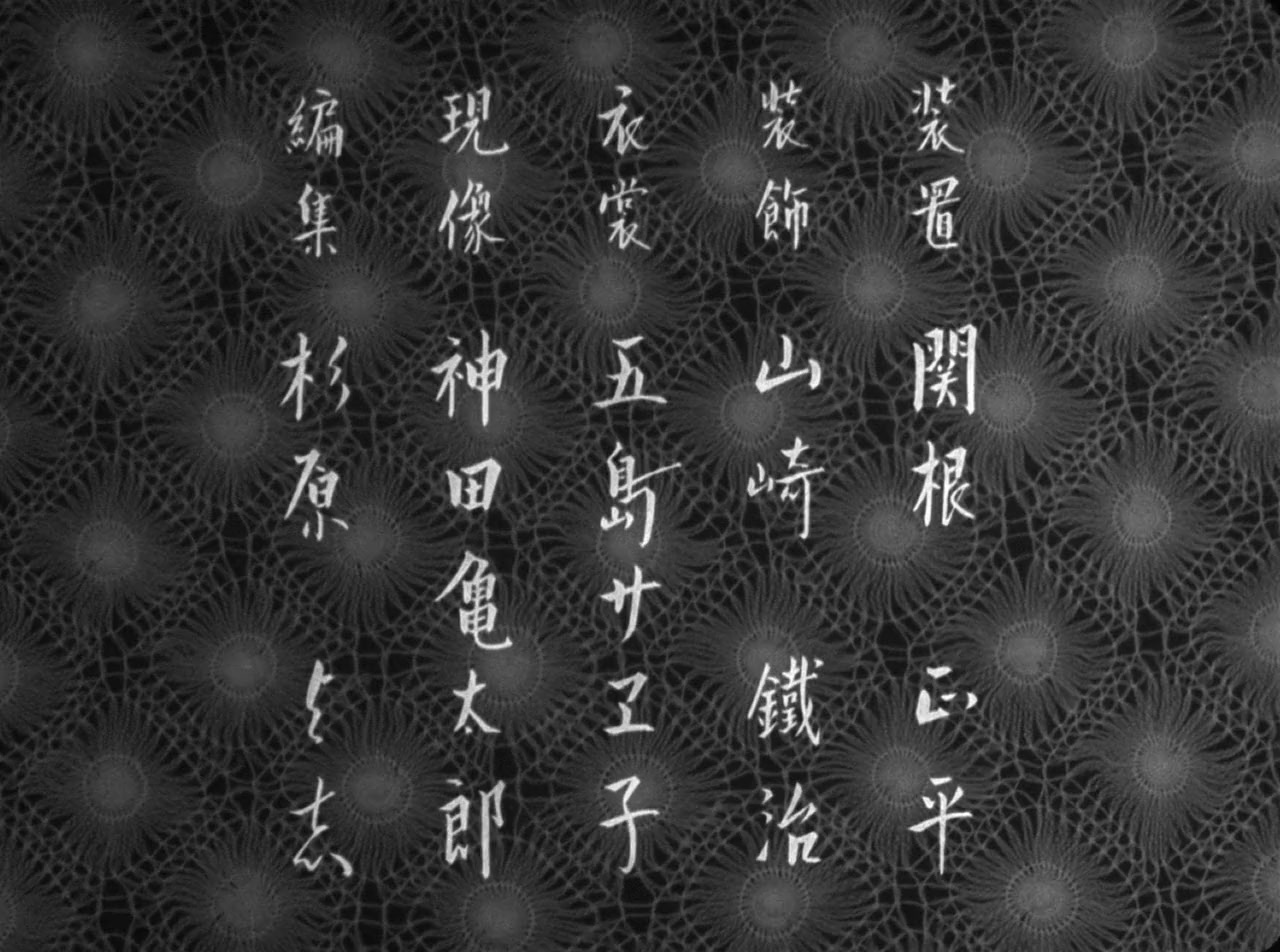 装置 関根正平
装飾 山崎鐵治
衣裳 五島サヱ子
現像 神田亀太郎
編集 杉原よ志